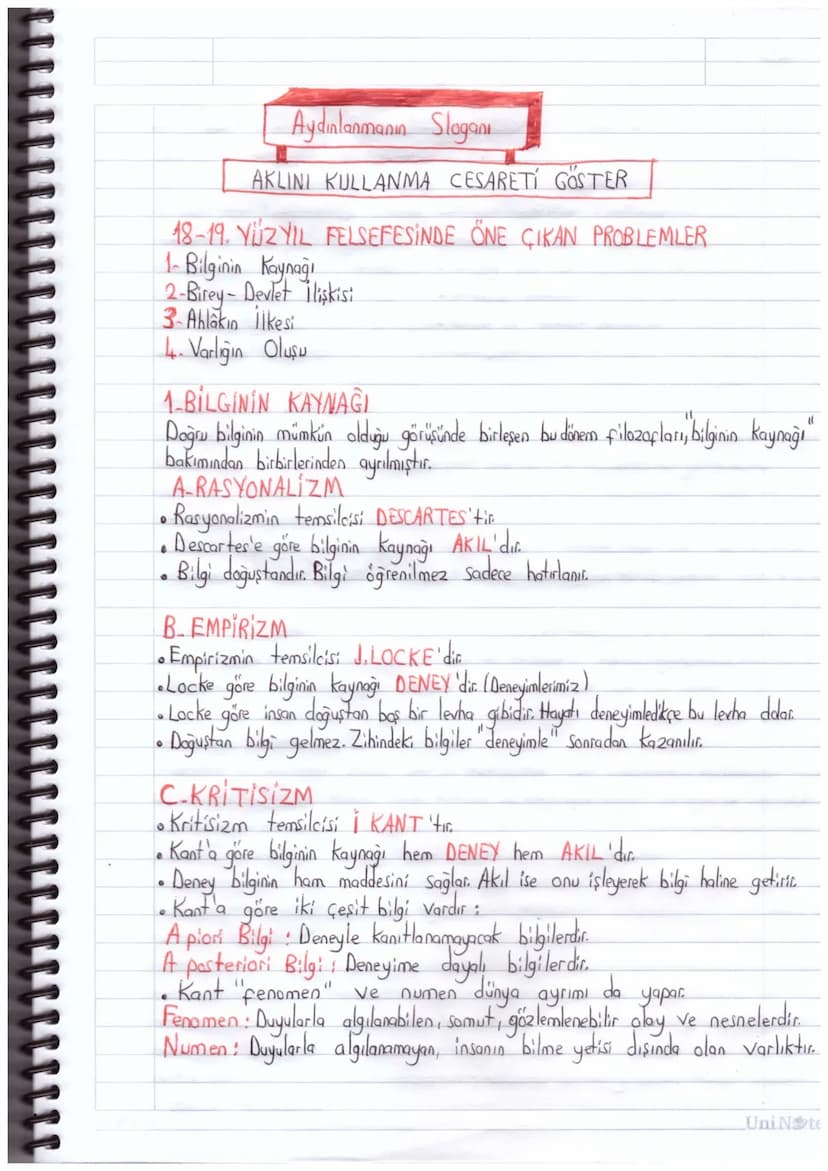 Aydınlanmanın Sloganı
AKLINI KULLANMA CESARETİ GÖSTER
18-19. YÜZYIL FELSEFESİNDE ÖNE ÇIKAN PROBLEMLER
1- Bilginin Kaynağı
2-Birey- Devlet İlişkisi
3-Ahlâkın İlkesi
4. Varlığın Oluşu
1-BİLGİNİN KAYNAĞI
Doğru bilginin mümkün olduğu görüşünde birleşen bu dönem filozofları, "bilginin kaynağı"
bakımından birbirlerinden ayrılmıştır.
A-RASYONALİZM
• Rasyonalizmin temsilcisi DESCARTES'tir.
• Descartes'e göre bilginin kaynağı AKIL'dır.
• Bilgi doğuştandır. Bilgi öğrenilmez sadece hatırlanır.
B- EMPİRİZM
• Empirizmin temsilcisi J.LOCKE'dir.
• Locke göre bilginin kaynağı DENEY'dir. (Deneyimlerimiz)
• Locke göre insan doğuştan boş bir levha gibidir. Hayatı deneyimledikçe bu levha dolar.
• Doğuştan bilgi gelmez. Zihindeki bilgiler "deneyimle" sonradan kazanılır.
C-KRİTİSİZM
• Kritisizm temsilcisi İ KANT'tır.
• Kant'a göre bilginin kaynağı hem DENEY hem AKIL'dır.
• Deney bilginin ham maddesini sağlar. Akıl ise onu işleyerek bilgi haline getirir.
• Kant'a göre iki çeşit bilgi vardır :
A piori Bilgi : Deneyle kanıtlanamayacak bilgilerdir.
A posteriori Bilgi : Deneyime dayalı bilgilerdir.
• Kant "fenomen" ve numen dünya ayrımı da yapar.
Fenomen : Duyularla algılanabilen, somut, gözlemlenebilir olay ve nesnelerdir.
Numen : Duyularla algılanamayan, insanın bilme yetisi dışında olan varlıktır.
Uni Note